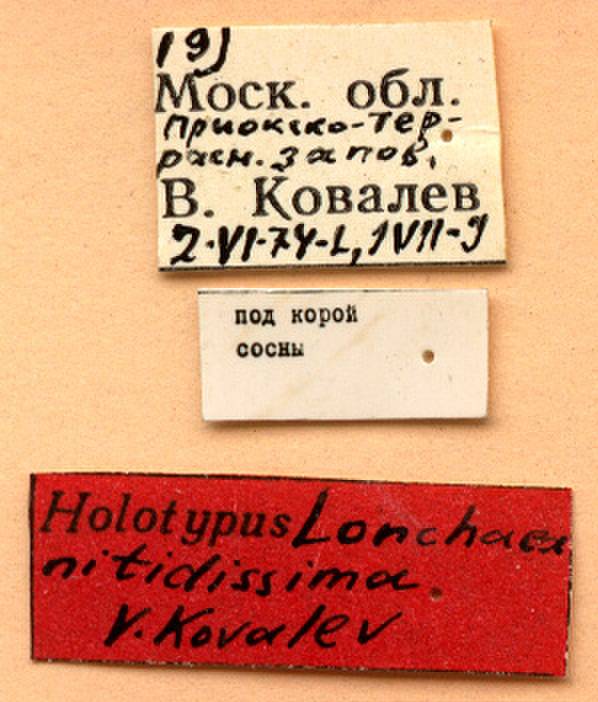 19)
Моск. обл.
Приокско-тер-
расн. запов.
В. Ковалев
2-VI-74-L, 1VII-I
под корой
сосны
Holotypus Lonchaea
nitidissima.
V. Kovalev